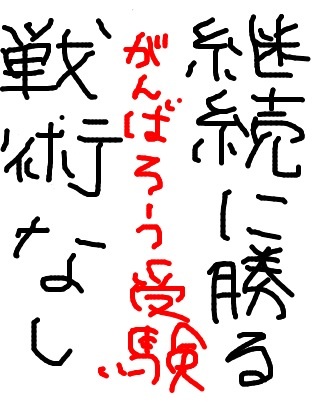 継続に勝る
がんばろう受験
戦術なし